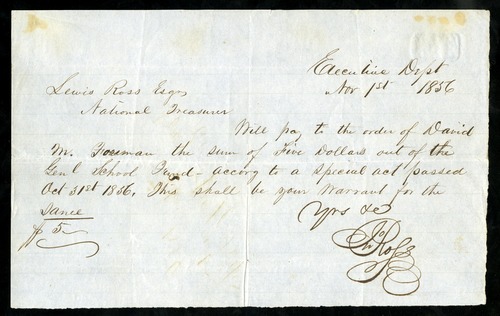 Executive Dept
Nov 1st 1856
Lewis Ross Esqr
National Treasurer
Will pay to the order of David
M. Foreman the sum of Five Dollars out of the
Genl School Fund - accorg to a special act passed
Oct 31st 1856. This shall be your Warrant for the
same
$5
Yrs &c
Jno Ross